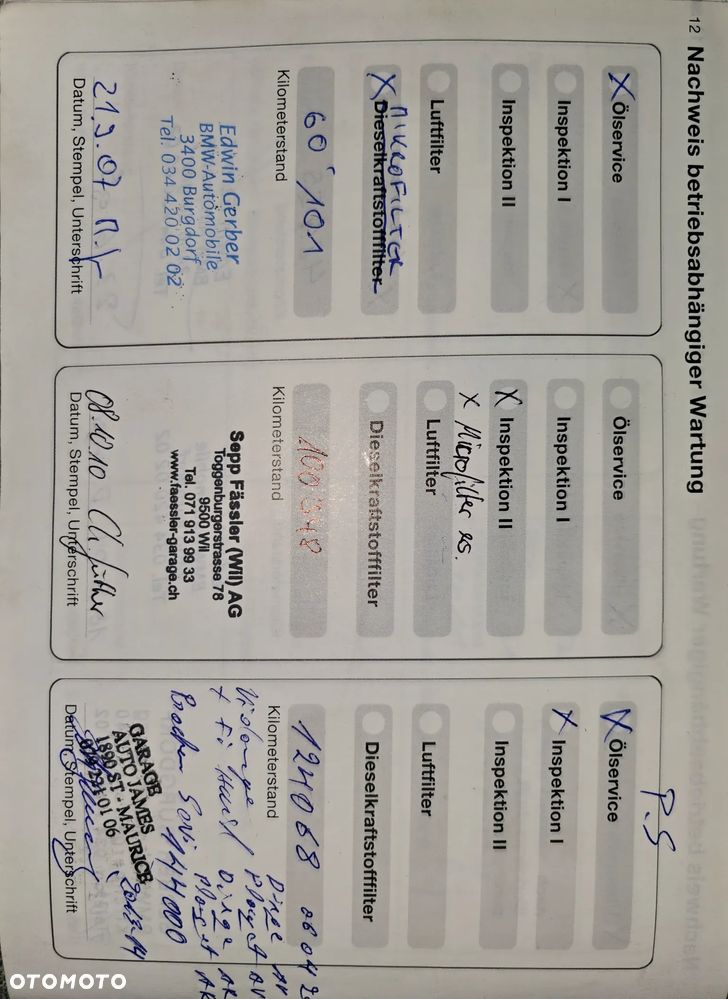 12 Nachweis betriebsabhängiger Wartung
X Ölservice
Inspektion I
Inspektion II
Luftfilter
MIKROFILTER
X Dieselkraftstofffilter
60'101
Kilometerstand
Edwin Gerber
BMW-Automobile
3400 Burgdorf
Tel. 034 420 02 02
21.9.07
Datum, Stempel, Unterschrift
Ölservice
Inspektion I
X Inspektion II
X Microfilter es.
Luftfilter
Dieselkraftstofffilter
Kilometerstand
Sepp Fässler (Wil) AG
Toggenburgerstrasse 78
9500 Wil
Tel. 071 913 99 33
www.faessler-garage.ch
08.10.10
Datum, Stempel, Unterschrift
P.S
X Ölservice
X Inspektion I
Inspektion II
Luftfilter
Dieselkraftstofffilter
124068 06 04
Kilometerstand
Vidange
144000
GARAGE
AUTO JAMES
1890 ST - MAURICE
Datum, Stempel, Unterschrift
OTOMOTO